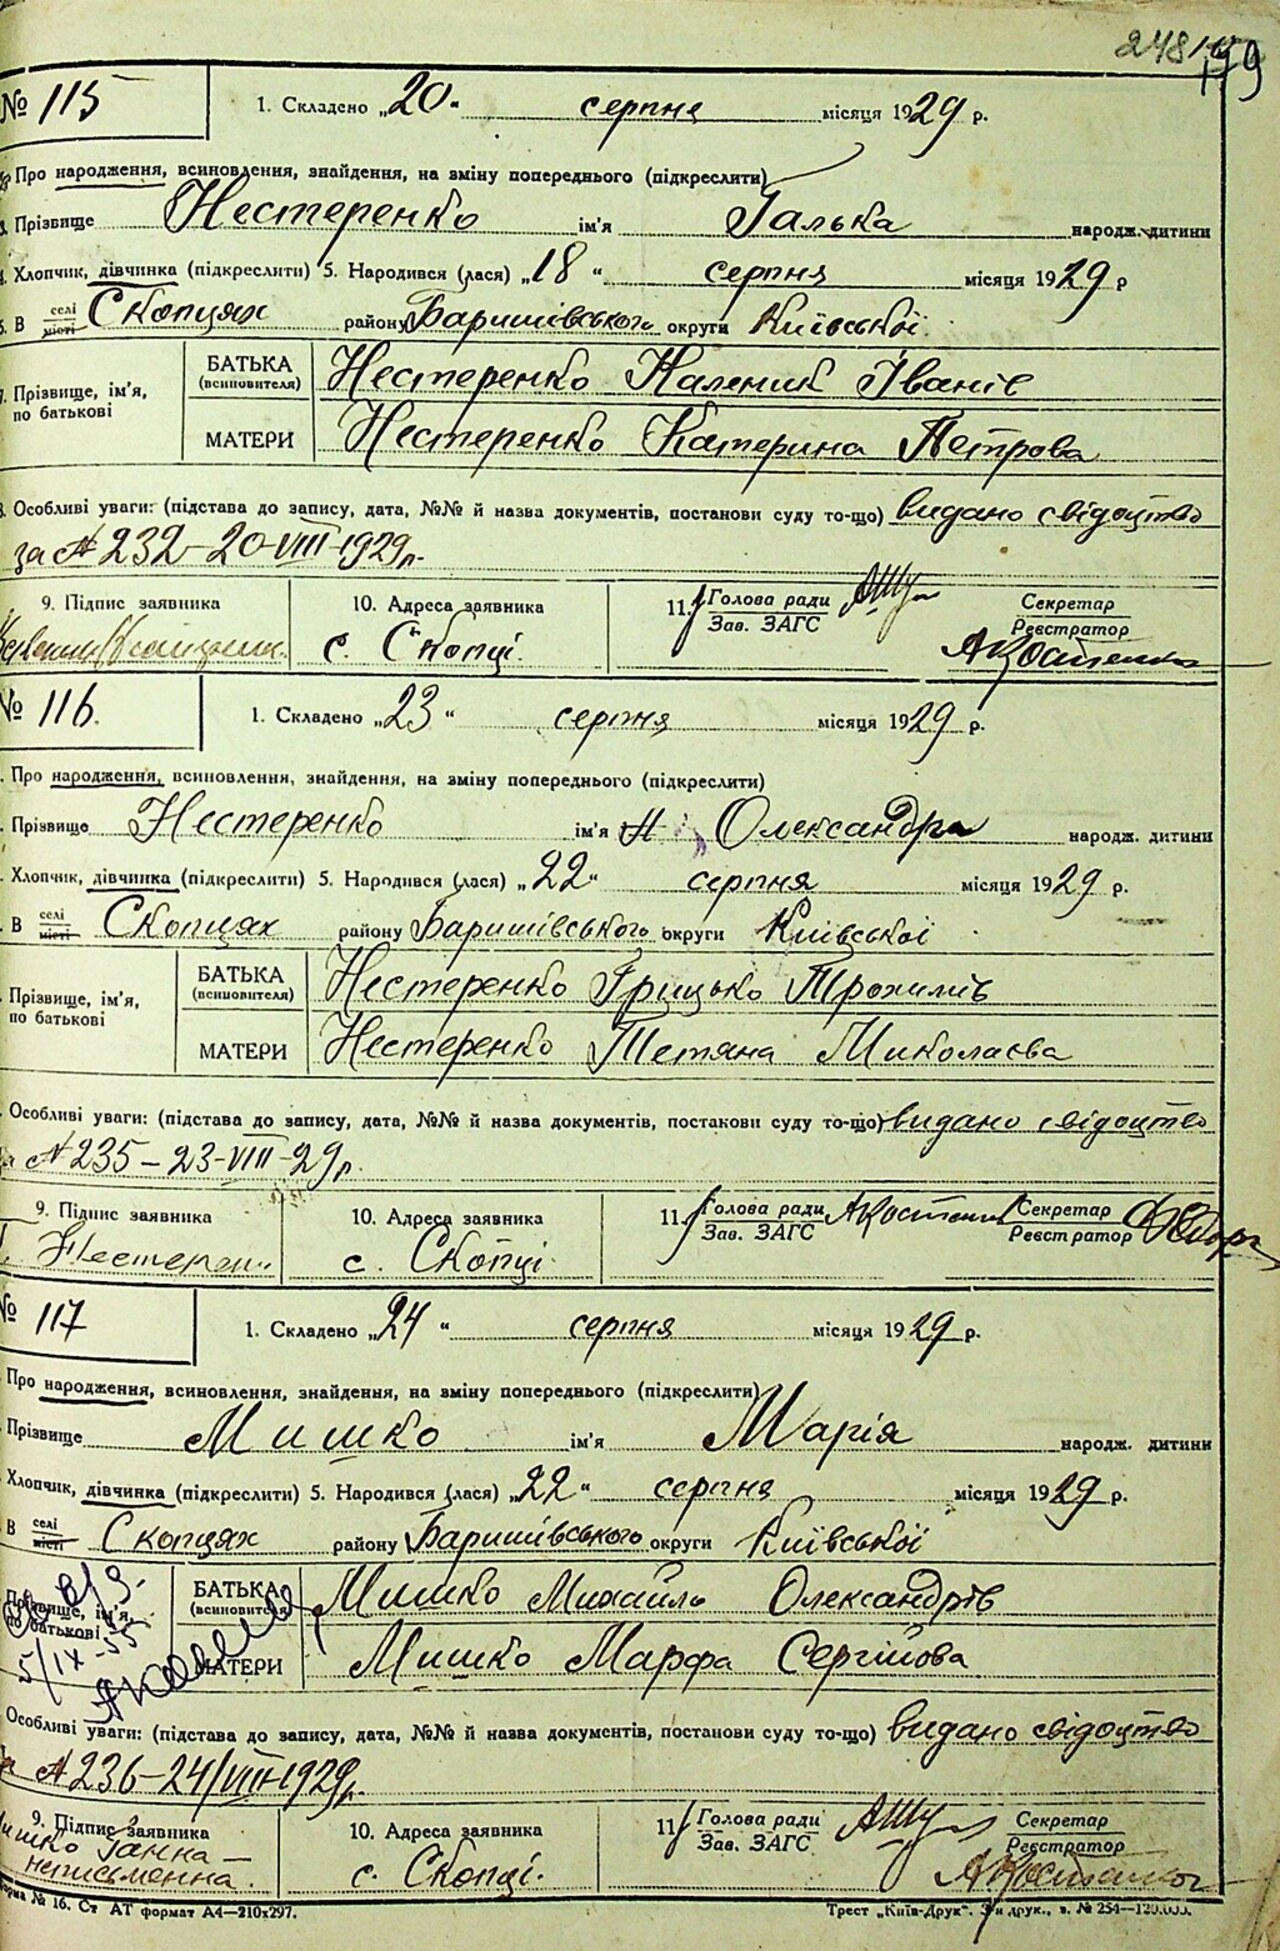 248
179
№ 115
1. Складено „20" серпня місяця 1929 р.
Про народження, всиновлення, знайдення, на зміну попереднього (підкреслити)
3. Прізвище Нестеренко ім'я Галька народж. дитини
4. Хлопчик, дівчинка (підкреслити) 5. Народився (лася) „18" серпня місяця 1929 р
6. В селі місті Скопцях району Баришівського округи Київської
7. Прізвище, ім'я, по батькові
БАТЬКА (всиновителя) Нестеренко Каленик Іванів
МАТЕРИ Нестеренко Катерина Петрова
8. Особливі уваги: (підстава до запису, дата, №№ й назва документів, постанови суду то-що) видано свідоцтво
за № 232–20–VIII–1929 р.
9. Підпис заявника 10. Адреса заявника 11. Голова ради Секретар
Зав. ЗАГС Реєстратор
с. Скопці. АКостенко
№ 116.
1. Складено „23" серпня місяця 1929 р.
Про народження, всиновлення, знайдення, на зміну попереднього (підкреслити)
Прізвище Нестеренко ім'я Олександра народж. дитини
Хлопчик, дівчинка (підкреслити) 5. Народився (лася) „22" серпня місяця 1929 р.
В селі місті Скопцях району Баришівського округи Київської
Прізвище, ім'я, по батькові
БАТЬКА (всиновителя) Нестеренко Грицько Трохимів
МАТЕРИ Нестеренко Тетяна Миколаєва
Особливі уваги: (підстава до запису, дата, №№ й назва документів, постакови суду то-що) видано свідоцтво
№ 235–23–VIII–29 р.
9. Підпис заявника 10. Адреса заявника 11. Голова ради АКостенко Секретар
Зав. ЗАГС Реєстратор
Нестерен с. Скопці
№ 117
1. Складено „24" серпня місяця 1929 р.
Про народження, всиновлення, знайдення, на зміну попереднього (підкреслити)
Прізвище Мишко ім'я Марія народж. дитини
Хлопчик, дівчинка (підкреслити) 5. Народився (лася) „22" серпня місяця 1929 р.
В селі місті Скопцях району Баришівського округи Київської
Прізвище, ім'я, по батькові
БАТЬКА (всиновителя) Мишко Михайль Олександрів
МАТЕРИ Мишко Марфа Сергійова
5/IX-55
Особливі уваги: (підстава до запису, дата, №№ й назва документів, постанови суду то-що) видано свідоцтво
№ 236–24/VIII–1929 р.
9. Підпис заявника 10. Адреса заявника 11. Голова ради Секретар
Зав. ЗАГС Реєстратор
Мишко Ганна –
неписьменна. с. Скопці. АКостенко
Форма № 16. Ст АТ формат А4—210х297. Трест „Київ-Друк".